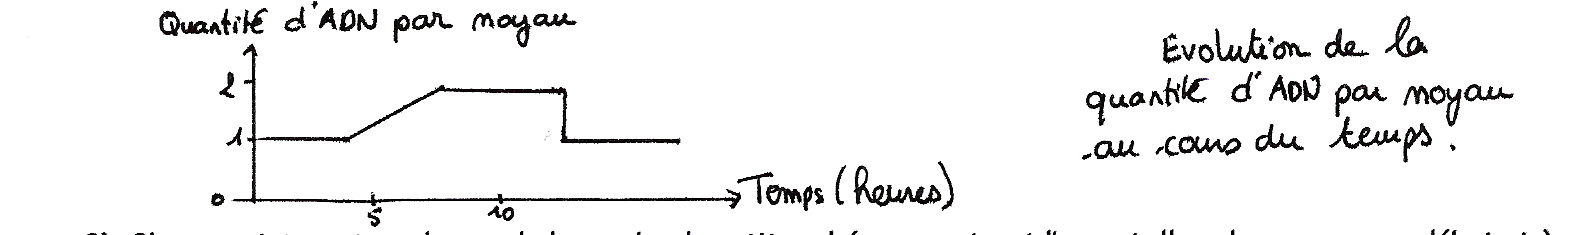 Quantité d'ADN par noyau
2
1
0
5
10
Temps (heures)
Evolution de la
quantité d'ADN par noyau
au cours du temps.